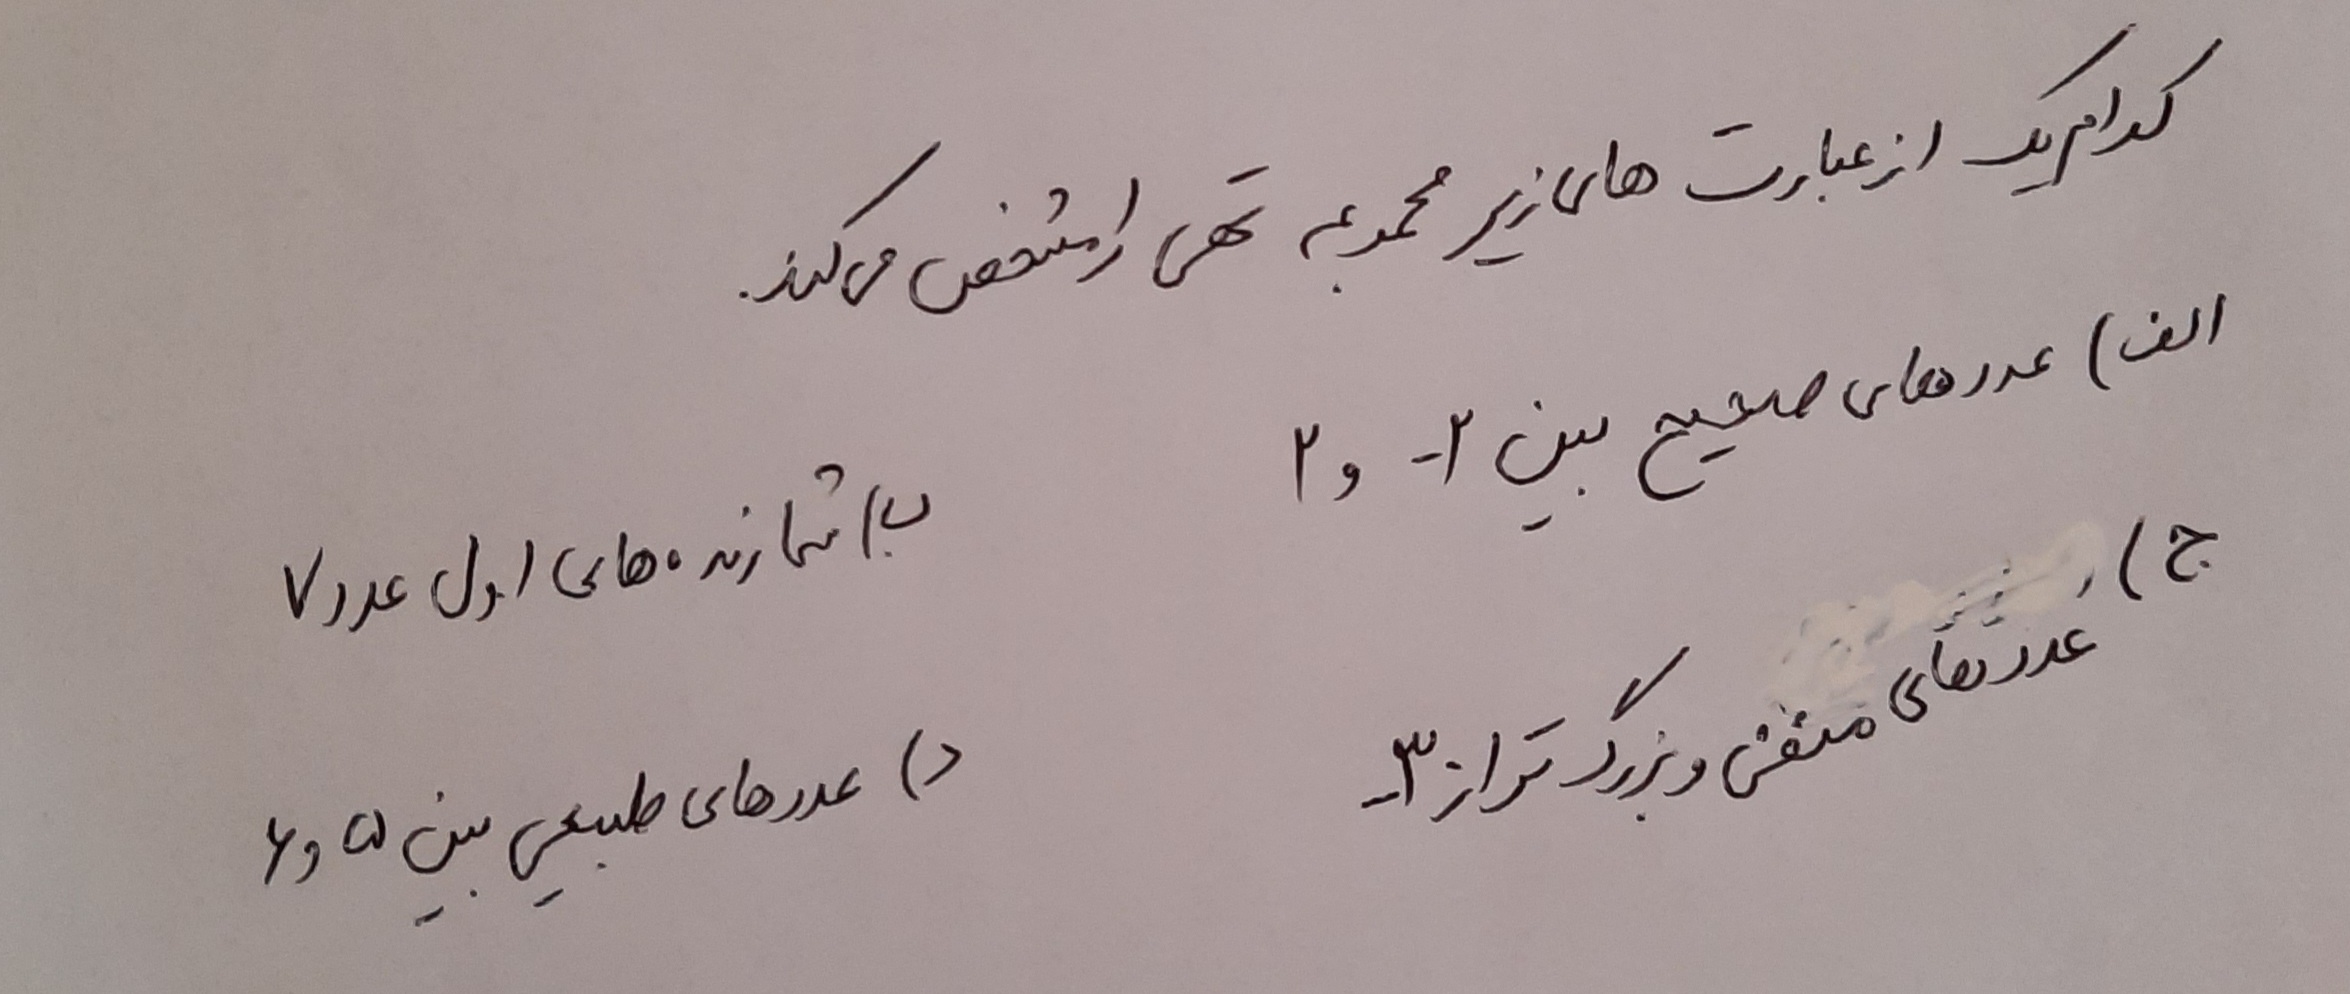 کدام یک از عبارت های زیر مجموعه تهی را مشخص می کند.
الف) عددهای صحیح بین ۲- و ۲
ب) شمارنده های اول عدد ۷
ج) عددهای منفی و بزرگ تر از ۳-
د) عددهای طبیعی بین ۵ و ۶